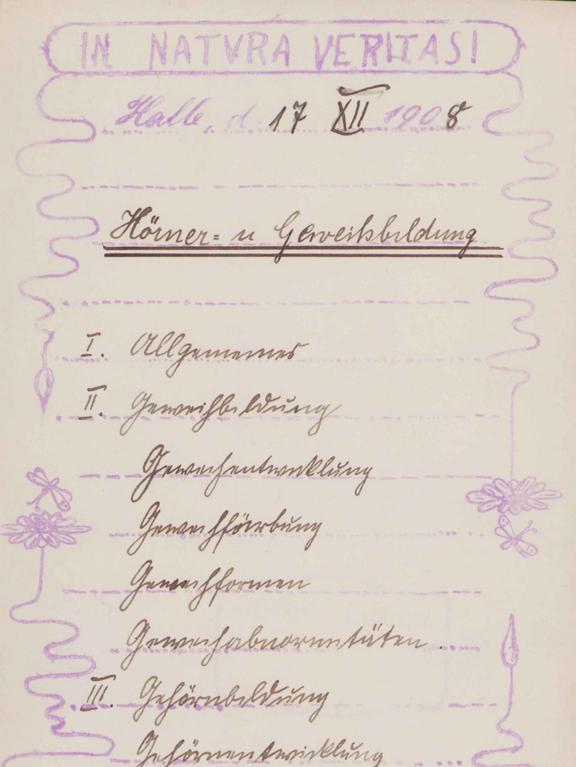 IN NATVRA VERITAS!
Halle, d. 17 XII 1908
Hörner= u Geweihbildung
I. Allgemeines
II. Geweihbildung
Geweihentwicklung
Geweihfärbung
Geweihformen
Geweihabnormitäten.
III. Gehörnbildung
Gehörnentwicklung